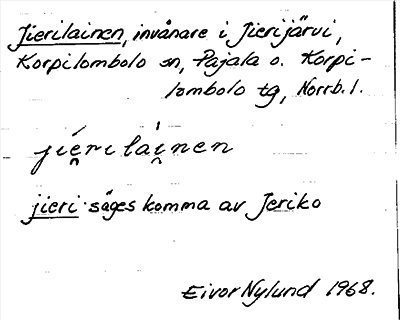 Jierilainen, invånare i Jierijärvi,
Korpilombolo sn, Pajala o. Korpi-
lombolo tg, Norrb. l.
ji̯e̯rilái̯nen
jieri säges komma av Jeriko
Eivor Nylund 1968.